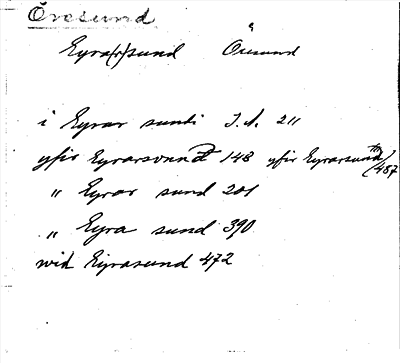 Öresund
Eyra(r)sund Öresund
i Eyrar sundi I.A. 211
yfir Eyrarsund 148 yfir Eyrarsund /487
" Eyrar sund 201
" Eyra sund 390
wid Eyrasund 472